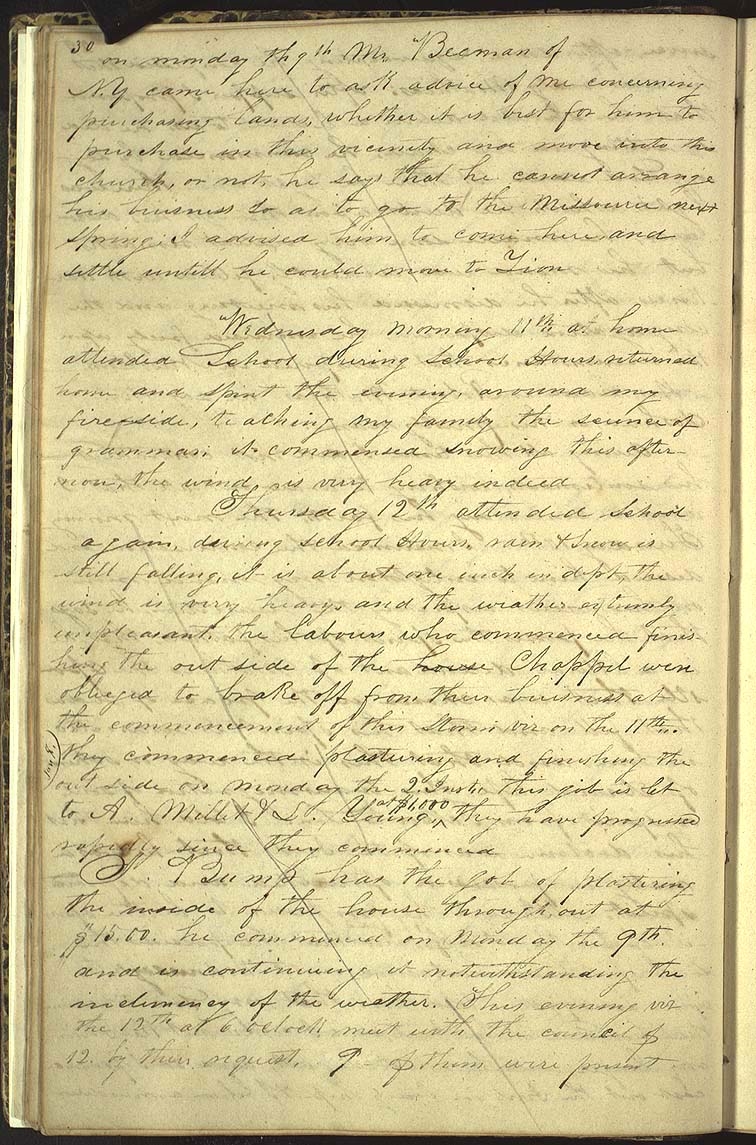 30
on monday th 9th Mr. Beeman of
N.Y came here to ask advice of me concerning
purchasing lands, whether it is best for him to
purchase in this vicinity and move into this
church, or not, he says that he cannot arrange
his buisness so as to go to the Missourie next
spring; I advised him to come here, and
settle untill he could move to Zion
Wednesday morning 11th at home
attended School during School Hours, returned
home and spent the evening, around my
fire-side, teaching my family the science of
grammar; it commensed snowing this after-
noon, the wind is very heavy indeed
Thursday 12th attended School
again, during school Hours, rain & snow is
still falling, it is about one inch in dept, the
wind is very heavy, and the weather extremly
unpleasant, the labours who commenced finis
hing the out side of the house Chappel were
oblieged to brake off from their buisness at
the commencement of this storm viz on the 11th.
they commenced plasturing and finishing the
out side on Monday the 2. Inst. this job is let
to A. Millet & L. Young, at $1,000 they have progressed
rapidly since they commenced
J. Bump has the job of plastering
the inside of the house through, out at
$15.00. he commenced on Monday the 9th.
and is continueing it notwithstanding the
inclemency of the weather. This evening viz
the 12th at 6 oclock meet with the council of
12. by their request, 9 of them were present